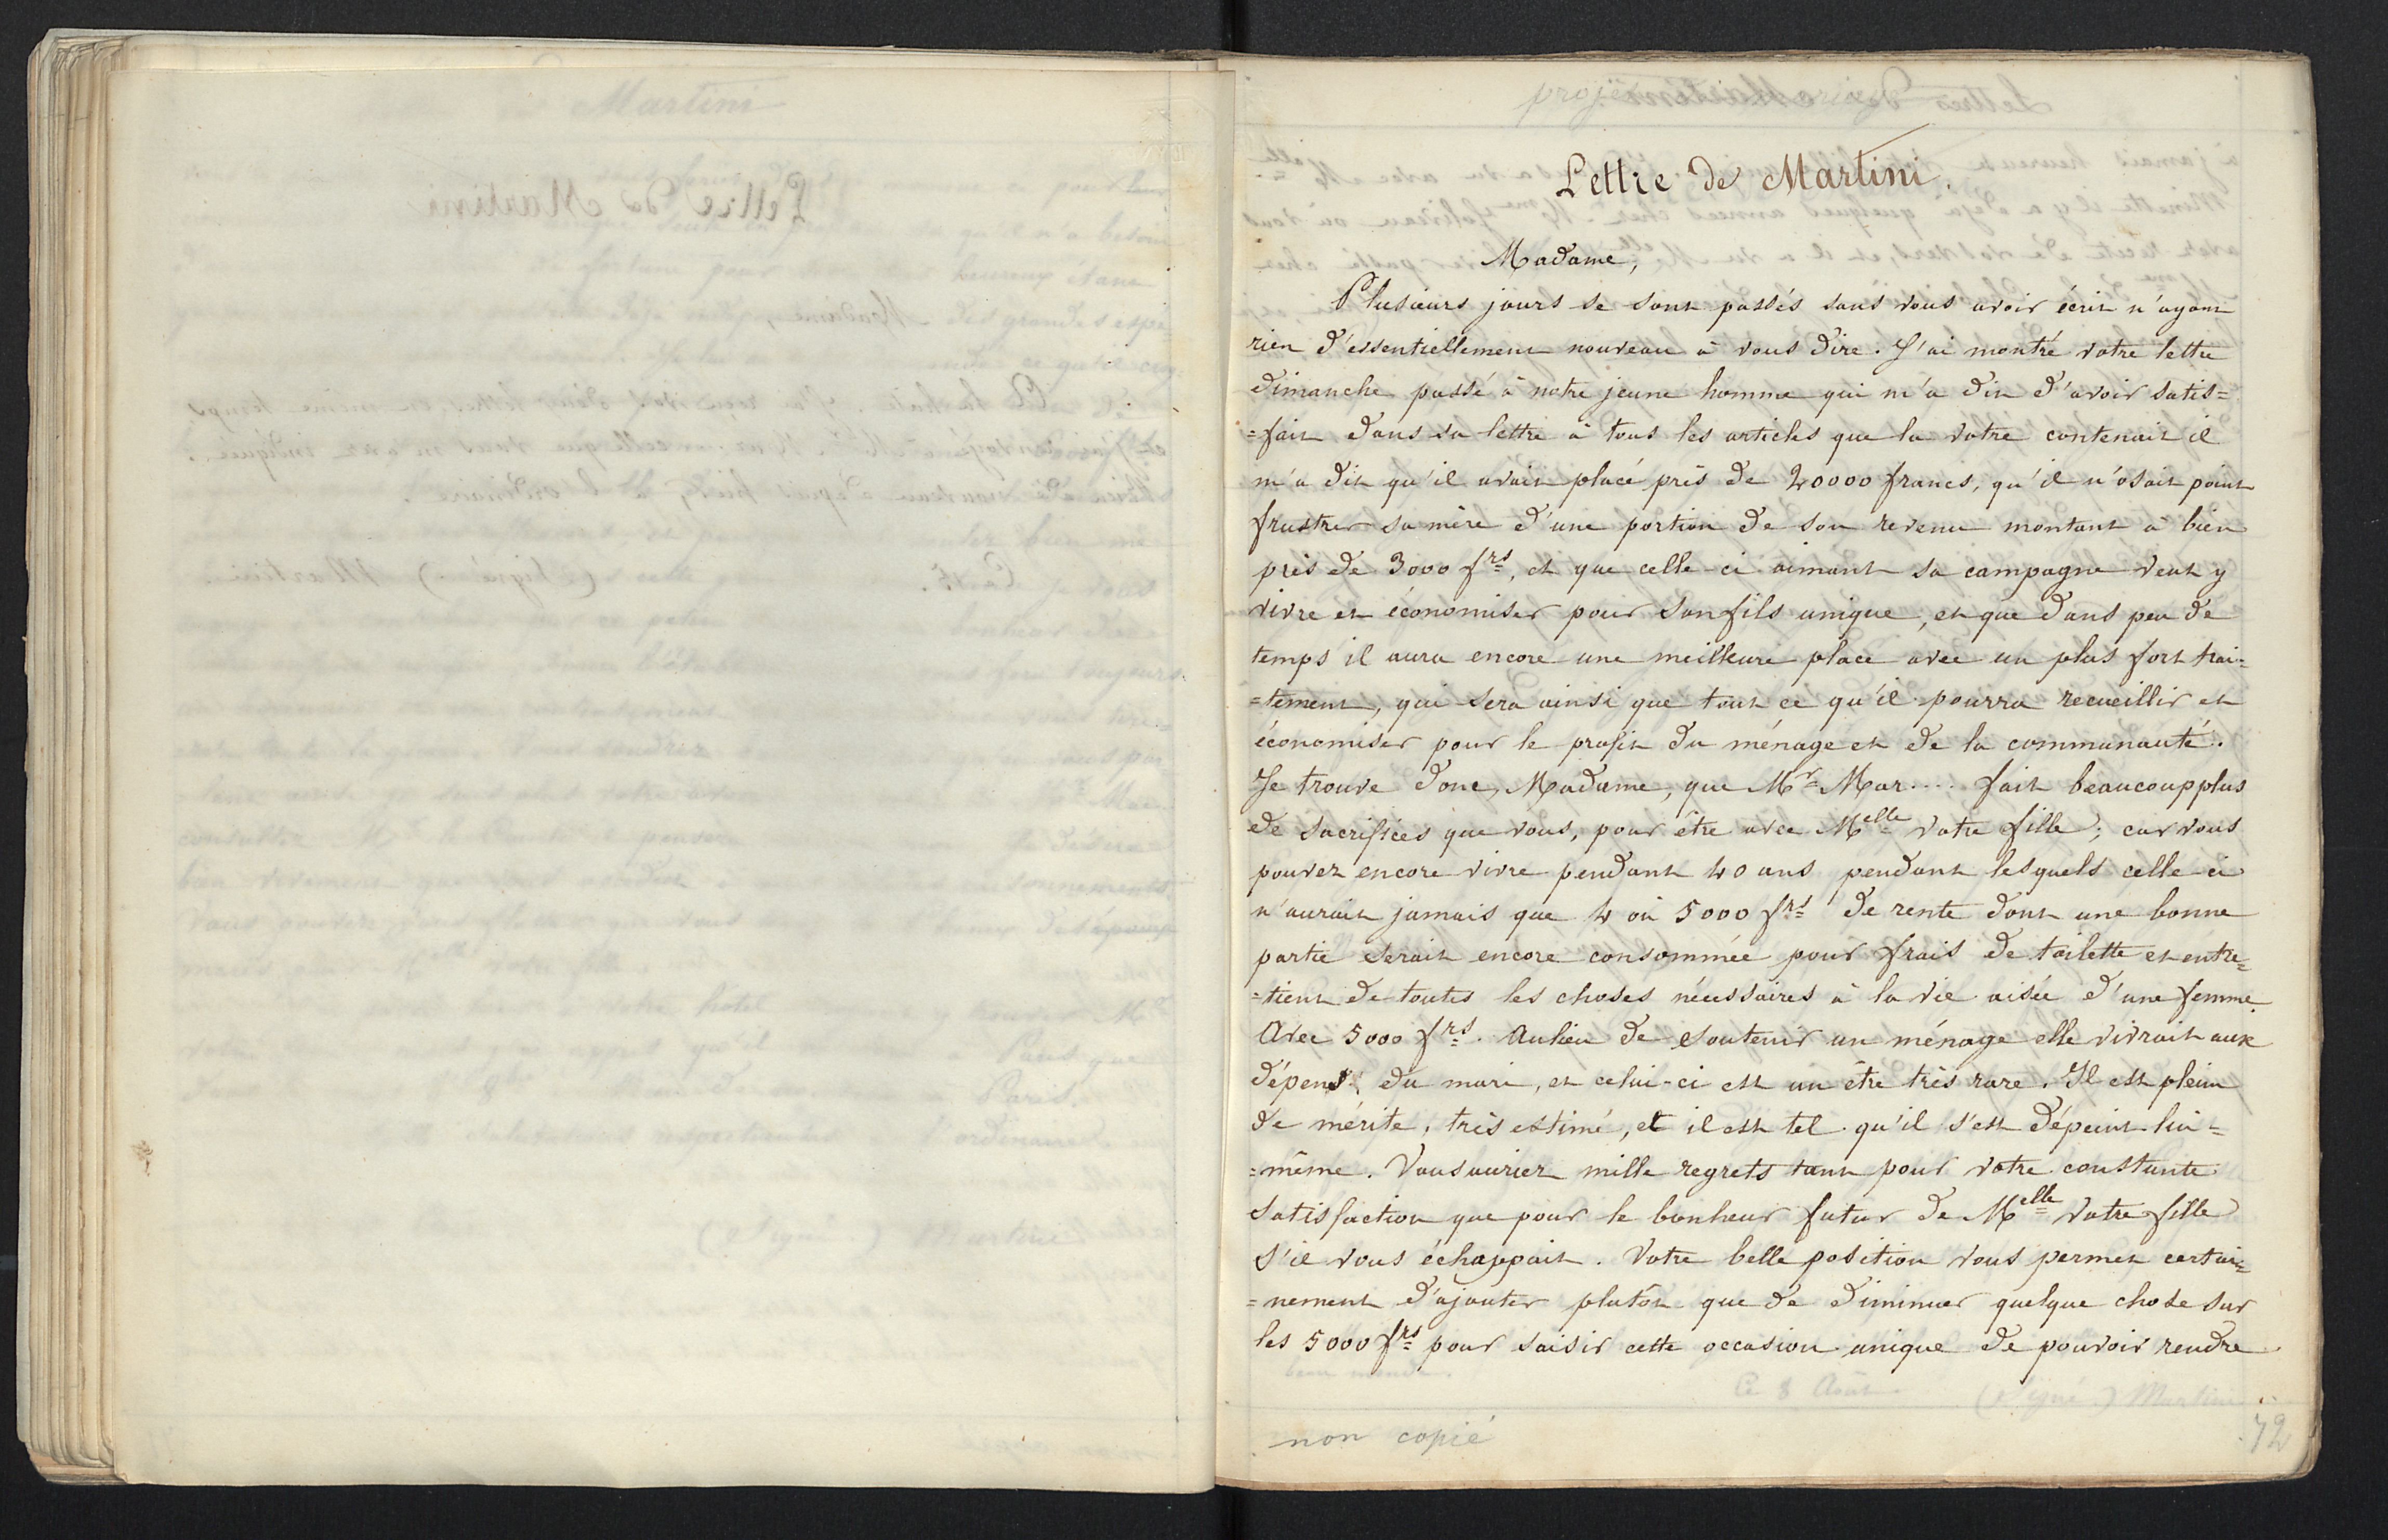 Lettre de Martini.
Madame,
Plusieurs jours se sont passés sans vous avoir écrit n'ayant
rien d'essentiellement nouveau à vous dire. J'ai montré votre lettre
dimanche passé à notre jeune homme qui m'a dit d'avoir satis=
=fait dans sa lettre à tous les articles que la votre contenait il
m'a dit qu'il avait placé près de 20000 francs, qu'il n'osait point
frustrer sa mère d'une portion de son revenu montant à bien
près de 3000 frs, et que celle-ci aimant sa campagne veut y
vivre et économiser pour son fils unique, et que dans peu de
temps il aura encore une meilleure place avec un plus fort trai=
=tement, qui sera ainsi que tout ce qu'il pourra recueillir et
économiser pour le profit du ménage et de la communauté.
Je trouve donc, Madame, que Mr Mar.... fait beaucoup plus
de sacrifices que vous, pour être avec Melle votre fille; car vous
pouvez encore vivre pendant 40 ans pendant lesquels celle-ci
n'aurait jamais que 4 où 5000 frs de rente dont une bonne
partie serait encore consommée pour frais de toilette et entre=
=tient de toutes les choses nécessaires à la vie aisée d'une femme.
Avec 5000 frs. Aulieu de soutenir un ménage elle vivrait aux
dépens du mari, et celui-ci est un être très rare. Il est plein
de mérite, très estimé, et il est tel qu'il s'est dépeint lui=
=même. Vous auriez mille regrets tant pour votre constante
satisfaction que pour le bonheur futur de Melle votre fille
s'il vous échappait. Votre belle position vous permet certai=
=nement d'ajouter plutôt que de diminuer quelque chose sur
les 5000 frs pour saisir cette occasion unique de pouvoir rendre
non copié
72